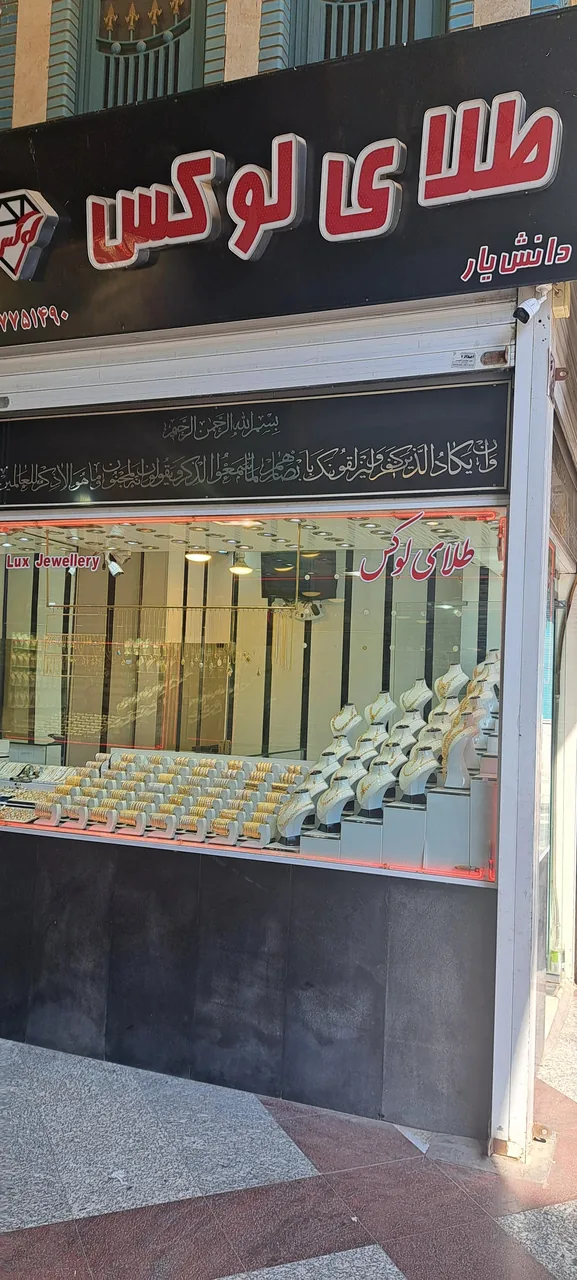 طلای لوکس
لوکس
دانش یار
۷۷۵۱۴۹۰
بسم الله الرحمن الرحیم
وان یکاد الذین کفروا لیزلقونک بابصارهم لما سمعوا الذکر و یقولون انه لمجنون و ما هو الا ذکر للعالمین
Lux Jewellery
طلای لوکس